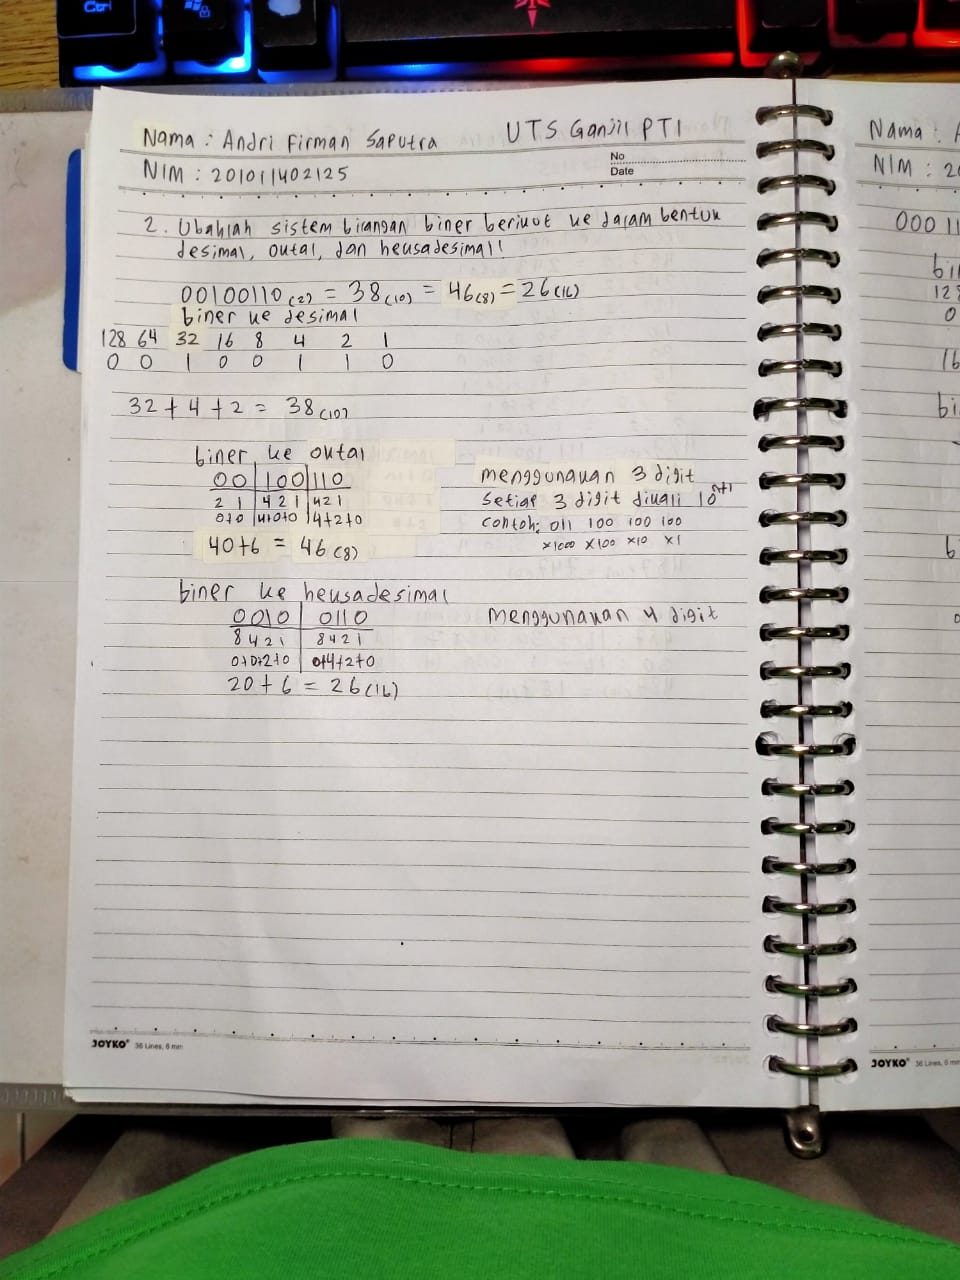 Ctrl
Nama : Andri Firman Saputra UTS Ganjil PTI
NIM : 201011402125
No
Date
2. Ubahlah sistem bilangan biner berikut ke dalam bentuk
desimal, oktal, dan heksadesimal!
00100110(2) = 38(10) = 46(8) = 26(16)
biner ke desimal
128 64 32 16 8 4 2 1
0 0 1 0 0 1 1 0
32 + 4 + 2 = 38(10)
biner ke oktal
00 | 100 | 110
2 1 | 4 2 1 | 4 2 1
0+0 | 4+0+0 | 4+2+0
40+6 = 46(8)
menggunakan 3 digit
setiap 3 digit dikali 10^n+1
contoh: 011 100 100 100
×1000 ×100 ×10 ×1
biner ke heksadesimal
0010 | 0110
8 4 2 1 | 8 4 2 1
0+0+2+0 | 0+4+2+0
20 + 6 = 26(16)
menggunakan 4 digit
JOYKO 36 Lines, 6 mm
Nama :
NIM : 20
000 11
bin
128
0
16
bi
b
JOYKO 36 Lines, 6 mm